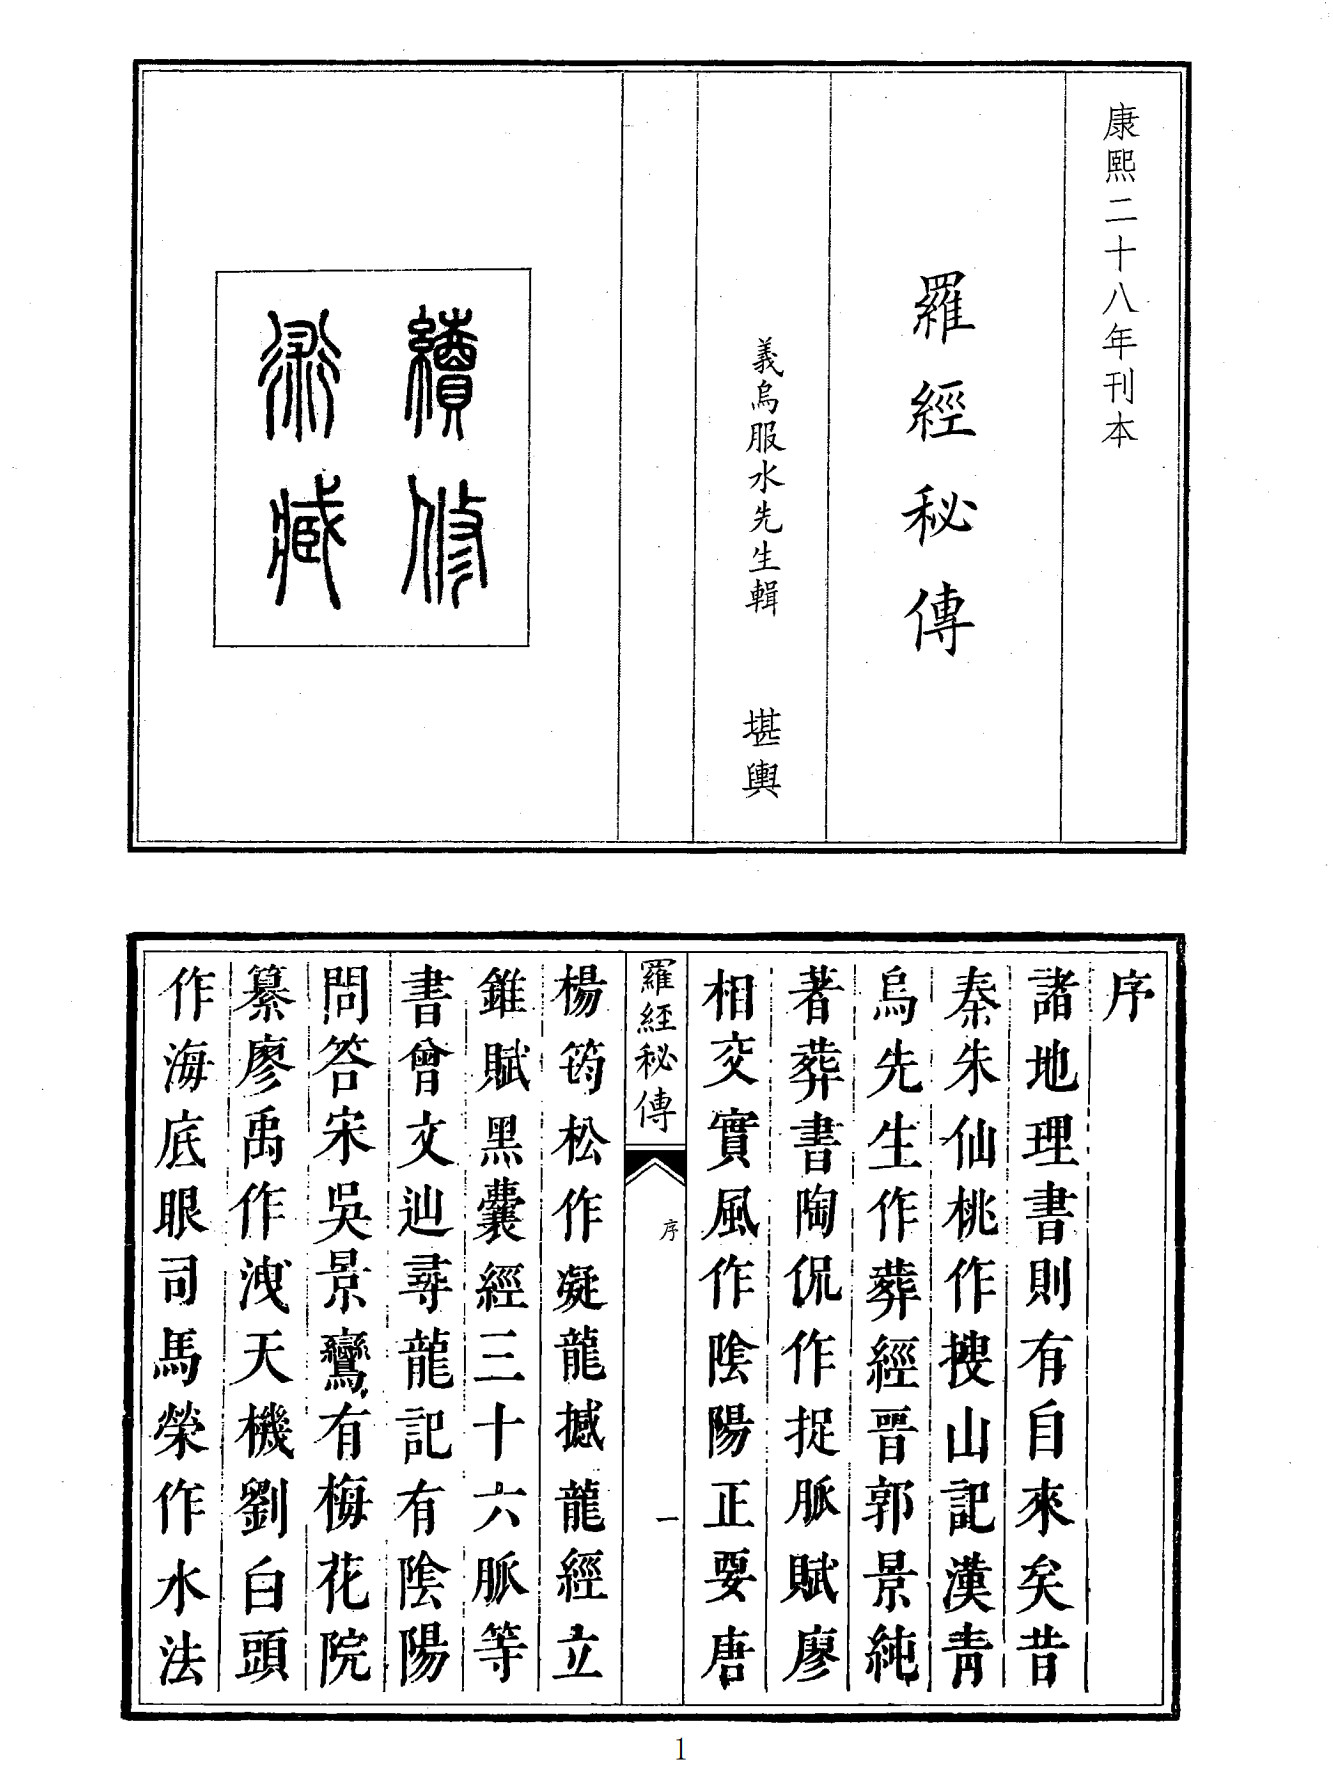 康熙二十八年刊本
羅經秘傳
義烏服水先生輯　堪輿
續修
術藏
序
諸地理書則有自來矣昔
秦朱仙桃作搜山記漢靑
烏先生作葬經晉郭景純
著葬書陶侃作捉脈賦廖
相交實風作陰陽正要唐
羅經秘傳　序　一
楊筠松作凝龍撼龍經立
錐賦黑囊經三十六脈等
書曾文辿尋龍記有陰陽
問答宋吳景鸞有梅花院
纂廖禹作洩天機劉白頭
作海底眼司馬榮作水法
1